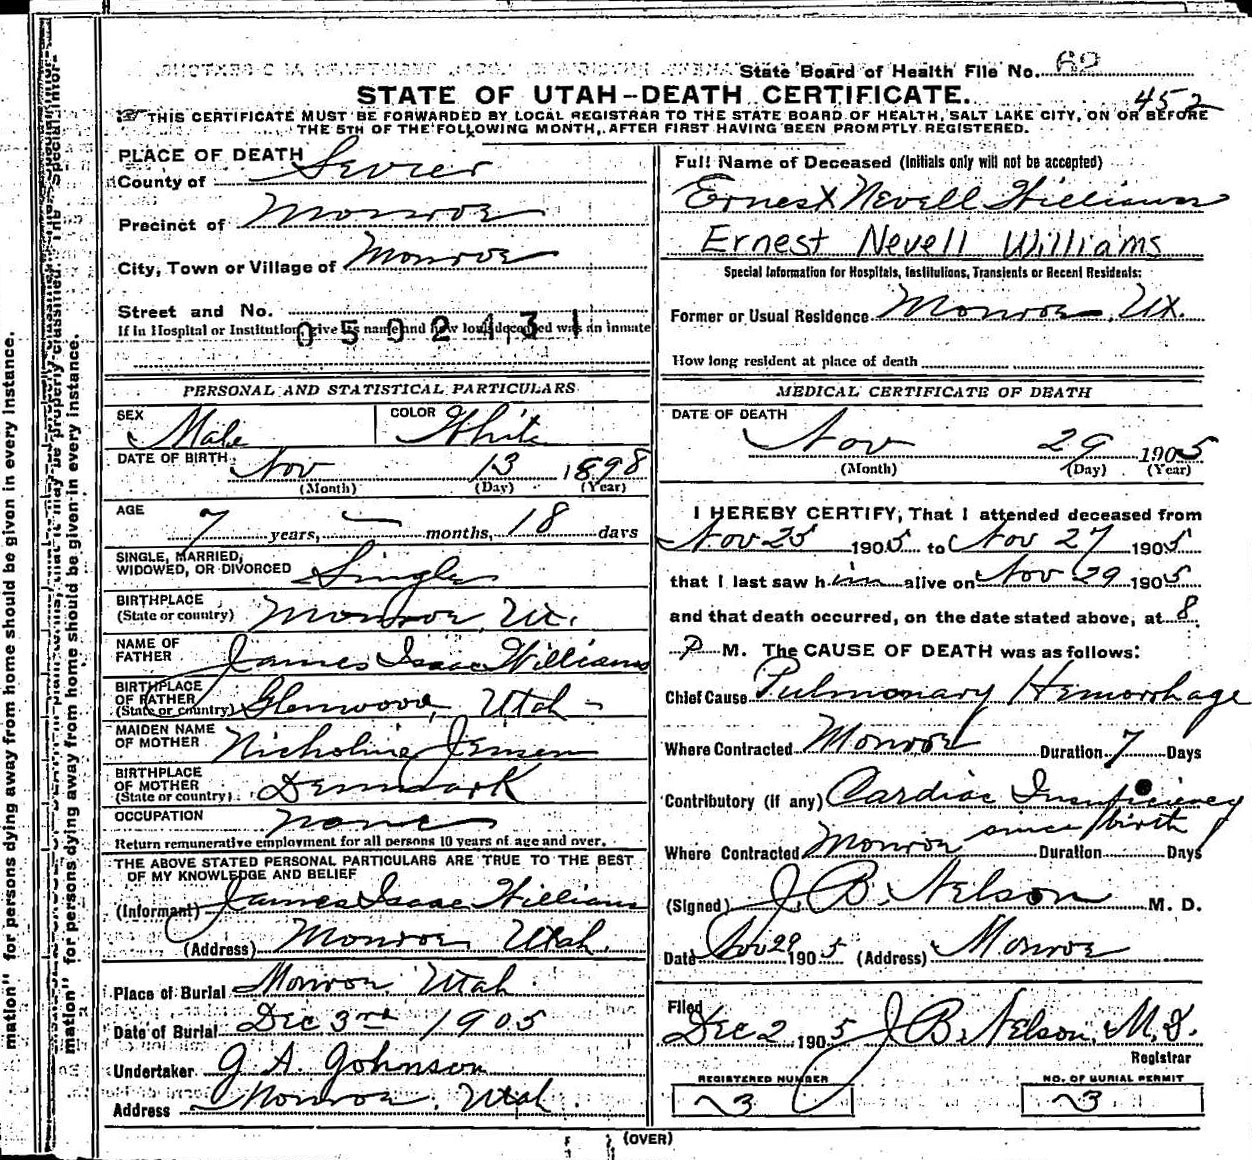 State Board of Health File No. 62
STATE OF UTAH-DEATH CERTIFICATE.
452
THIS CERTIFICATE MUST BE FORWARDED BY LOCAL REGISTRAR TO THE STATE BOARD OF HEALTH, SALT LAKE CITY, ON OR BEFORE
THE 5TH OF THE FOLLOWING MONTH, AFTER FIRST HAVING BEEN PROMPTLY REGISTERED.
PLACE OF DEATH
County of Sevier
Precinct of Monroe
City, Town or Village of Monroe
Street and No.
If in Hospital or Institution, give its name and how long deceased was an inmate
0502431
PERSONAL AND STATISTICAL PARTICULARS
SEX Male
COLOR White
DATE OF BIRTH Nov 13 1898
(Month) (Day) (Year)
AGE
7 years, months, 18 days
SINGLE, MARRIED,
WIDOWED, OR DIVORCED Single
BIRTHPLACE
(State or country) Monroe, Ut.
NAME OF
FATHER James Isaac Williams
BIRTHPLACE
OF FATHER
(State or country) Glenwood, Utah
MAIDEN NAME
OF MOTHER Nicholine Jensen
BIRTHPLACE
OF MOTHER
(State or country) Denmark
OCCUPATION none
Return remunerative employment for all persons 10 years of age and over.
THE ABOVE STATED PERSONAL PARTICULARS ARE TRUE TO THE BEST
OF MY KNOWLEDGE AND BELIEF
(Informant) James Isaac Williams
(Address) Monroe, Utah.
Place of Burial Monroe, Utah.
Date of Burial Dec 3rd 1905
Undertaker J. A. Johnson
Address Monroe, Utah.
Full Name of Deceased (Initials only will not be accepted)
Ernest Nevell Williams
Ernest Nevell Williams
Special Information for Hospitals, Institutions, Transients or Recent Residents:
Former or Usual Residence Monroe, Ut.
How long resident at place of death
MEDICAL CERTIFICATE OF DEATH
DATE OF DEATH
Nov 29 1905
(Month) (Day) (Year)
I HEREBY CERTIFY, That I attended deceased from
Nov 25 1905 to Nov 27 1905
that I last saw him alive on Nov 29 1905
and that death occurred, on the date stated above, at 8
P M. The CAUSE OF DEATH was as follows:
Chief Cause Pulmonary Hemorrhage
Where Contracted Monroe Duration 7 Days
Contributory (if any) Cardiac Insuficiency
since birth
Where Contracted Monroe Duration Days
(Signed) J. B. Nelson M. D.
Date Nov 29 1905 (Address) Monroe
Filed
Dec 2 1905 J B. Nelson, M.D.
Registrar
REGISTERED NUMBER
3
NO. OF BURIAL PERMIT
3
(OVER)
mation" for persons dying away from home should be given in every instance.
mation" for persons dying away from home should be given in every instance.